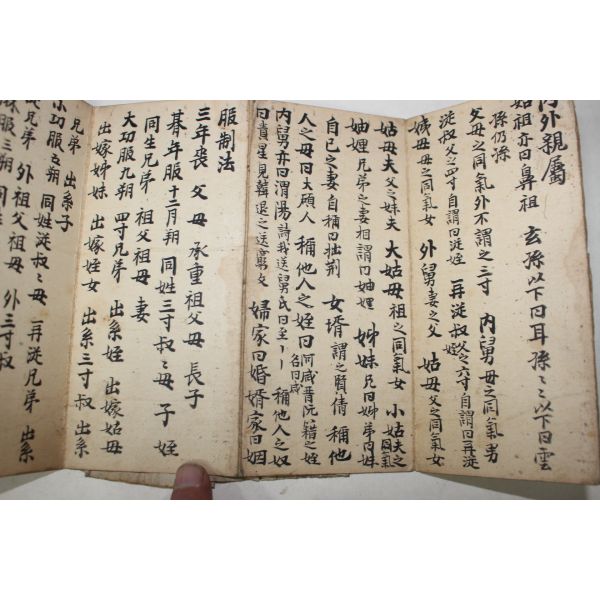 內外親屬
始祖亦曰鼻祖 玄孫以下曰耳孫〻〻以下曰雲
孫仍孫
父母之同氣外不謂之三寸 內舅母之同氣男
從叔父之四寸自謂曰從姪 再從叔父之六寸自謂曰再從
姨母母之同氣女 外舅妻之父 姑母父之同氣女
姑母夫父之妹夫 大姑母祖之同氣女 小姑夫之同氣
妯娌兄弟之妻相謂曰妯娌 姊妹兄曰姊弟曰妹
自己之妻自稱曰壯荆 女壻謂之賢倩 稱他
人之母曰大碩人 稱他人之姪曰阿咸晉阮籍之姪名曰咸
內舅亦曰渭陽詩我送舅氏曰至〻〻 稱他人之奴
曰貴星見韓退之送窮文 婦家曰婚壻家曰姻
服制法
三年喪 父母 承重祖父母 長子
朞年服十二月朔 同姓三寸叔〻母 子 姪
同生兄弟 祖父祖母 妻
大功服九朔 四寸兄弟 出系姪 出嫁姑母
出嫁姊妹 出嫁姪女 出系三寸叔 出系
兄弟 出系子
小功服五朔 同姓從叔〻母 再從兄弟 出系
從兄弟 外祖父祖母 外三寸叔
服三朔